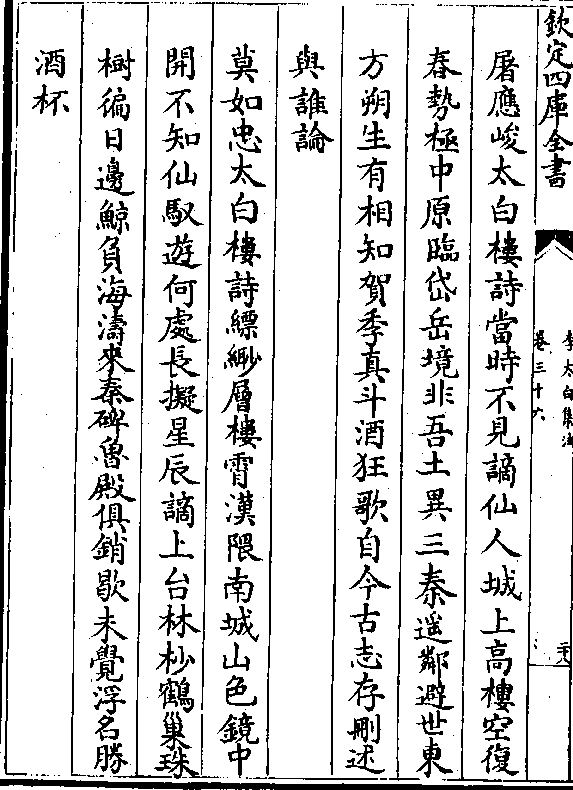 欽定四庫全書
李太白集注
卷三十六
屠應峻太白樓詩當時不見謫仙人城上高樓空復
春勢極中原臨岱岳境非吾土異三秦遥鄰避世東
方朔生有相知賀季真斗酒狂歌自今古志存刪述
與誰論
莫如忠太白樓詩縹緲層樓霄漢隈南城山色鏡中
開不知仙馭遊何處長擬星辰謫上台林杪鶴巢珠
樹徧日邊鯨負海濤來秦碑魯殿俱銷歇未覺浮名勝
酒杯